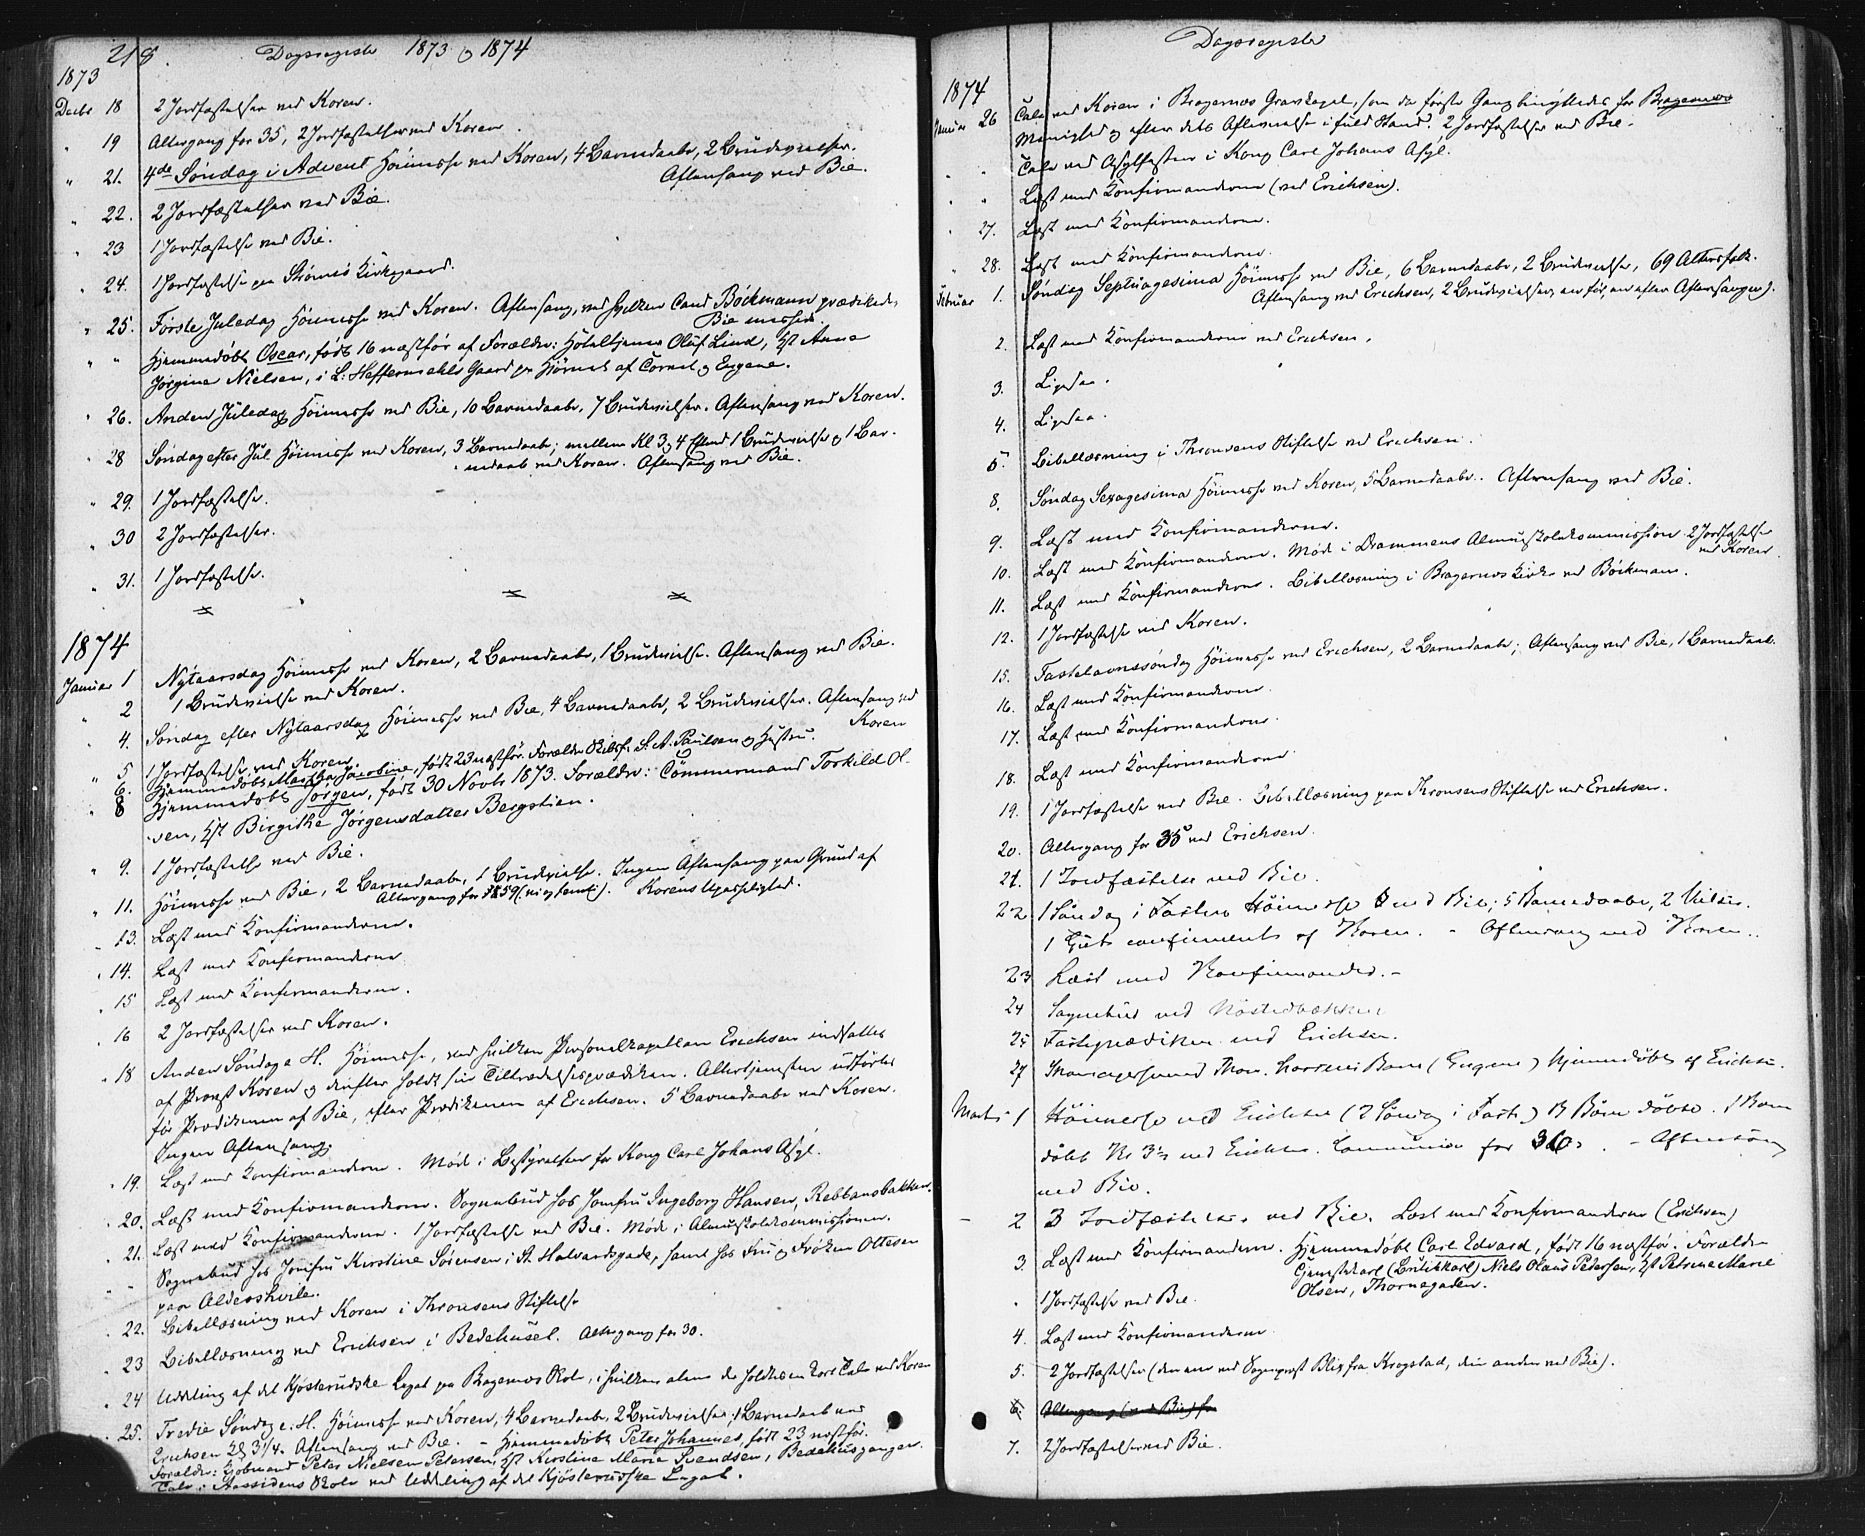 218 Dagsregister 1873 og 1874
1873
Decbr 18 2 Jordfæstelser ved Koren.
" 19 Altergang for 35, 2 Jordfæstelser ved Koren.
" 21. 4de Søndag i Advent Höimesse ved Koren, 4 Barnedaabe, 2 Brudevielser.
Aftensang ved Bie.
" 22. 2 Jordfæstelser ved Bie.
" 23 1 Jordfæstelse ved Bie.
" 24. 1 Jordfæstelse paa Strømsö Kirkegaard.
" 25. Første Juledag Höimesse ved Koren. Aftensang, ved hvilken Cand Böckmann prædikede,
Bie messede.
" " Hjemmedøbt Oscar, født 16 næstfør af Forældre: Hötelltjener Oluf Lind, Hst Anna
Jørgine Nielsen, i L: Heffermehls Gaard paa Hjörnet af Cornet og Engene.
" 26. Anden Juledag Höimesse ved Bie, 10 Barnedaabe, 7 Brudevielser. Aftensang ved Koren.
" 28 Søndag efter Jul Höimesse ved Koren, 3 Barnedaabe; mellem Kl 3 og 4 Eftmd 1 Brudevielse og 1 Bar-
nedaab ved Koren. Aftensang ved Bie.
" 29. 1 Jordfæstelse.
" 30 2 Jordfæstelser.
" 31. 1 Jordfæstelse.
1874
Januar 1 Nytaarsdag Höimesse ved Koren, 2 Barnedaabe, 1 Brudevielse. Aftensang ved Bie.
" 2 1 Brudevielse ved Koren.
" 4. Søndag efter Nytaarsdag Höimesse ved Bie, 4 Barnedaabe, 2 Brudevielser. Aftensang ved
Koren
" 5 1 Jordfæstelse ved Koren.
" 6. Hjemmedøbt Martha Jacobine, født 23 næstfør. Forældre S. A. Paulsen og Hustru.
" 8 Hjemmedøbt Jørgen, født 30 Novbr 1873. Forældre: Tömmermand Torkild Ol-
sen, Hst Birgithe Jørgensdatter Bergstien.
" 9. 1 Jordfæstelse ved Bie.
" 11. Höimesse ved Bie, 2 Barnedaabe, 1 Brudevielse. Ingen Aftensang paa Grund af
Altergang for 59 (ni og femti). Korens Upasselighed.
" 13. Læst med Konfirmanderne.
" 14. Læst med Konfirmanderne
" 15 Læst med Konfirmanderne.
" 16 2 Jordfæstelser ved Koren.
" 18 Anden Søndag e. H. Höimesse, ved hvilken Personelkapellan Erichsen indsattes
af Provst Koren og derefter holdt sin Tiltrædelsesprædiken. Altertjenesten udførtes
før Prædikenen af Bie, efter Prædikenen af Erichsen. 5 Barnedaabe ved Koren.
Ingen Aftensang.
" 19. Læst med Konfirmanderne. Möde i Bestyrelsen for Kong Carl Johans Asyl.
" 20. Læst med Konfirmanderne. Sognebud hos Jomfru Ingeborg Hansen, Rebbansbakken.
" 21. Læst med Konfirmanderne. 1 Jordfæstelse ved Bie. Möde i Almueskolekommissionen.
" - Sognebud hos Jomfru Kirstine Sørensen i St. Halvardsgade, samt hos Fru og Frøken Ottesen
paa Aldershvile.
" 22. Bibellæsning ved Koren i Thronsens Stiftelse
" 23 Bibellæsning ved Erichsen i Bedehuset. Altergang for 30.
" 24 Uddeling af det Kjösterudske Legat paa Bragernæs Skole, i hvilken alene de holdtes en kort Tale ved Koren
" 25. Tredie Søndag e. H. Höimesse ved Koren, 4 Barnedaabe, 2 Brudevielser, 1 Barnedaab ved
Erichsen Kl 3 1/4. Aftensang ved Bie. - Hjemmedøbt Peter Johannes, født 23 næstfør.
Forældre: Kjöbmand Peter Nielsen Petersen, Hst Kirstine Marie Svendsen, Bedehusgangen.
Tale i Aassidens Skole ved Uddeling af det Kjösterudske Legat.
Dagsregister
1874
Januar 26 Tale ved Koren i Bragernæs Gravkapel, som da første Gang benyttedes for Bragernæs
Menighed og efter dets Aflevering i fuld Stand. 2 Jordfæstelser ved Bie.
" " Tale ved Asylfesten i Kong Carl Johans Asyl.
" " Læst med Konfirmanderne (ved Erichsen).
" 27. Læst med Konfirmanderne.
" 28. Læst med Konfirmanderne.
Februar 1. Søndag Septuagesima Höimesse ved Bie, 6 Barnedaabe, 2 Brudevielser, 69 Altersfolk.
Aftensang ved Erichsen, 2 Brudevielser, en før, en efter Aftensangen.
2. Læst med Konfirmanderne ved Erichsen.
3. Ligesaa.
4. Ligesaa.
5. Bibellæsning i Thronsens Stiftelse ved Erichsen.
8. Søndag Sexagesima Höimesse ved Koren, 5 Barnedaabe. Aftensang ved Bie.
9. Læst med Konfirmanderne.
10. Læst med Konfirmanderne. Möde i Drammens Almueskolekommission. 2 Jordfæstelser
ved Koren.
11. Læst med Konfirmanderne. Bibellæsning i Bragernæs Kirke ved Böckmann.
12. 1 Jordfæstelse ved Koren.
15. Fastelavnssøndag Höimesse ved Erichsen, 2 Barnedaabe; Aftensang ved Bie, 1 Barnedaab.
16. Læst med Konfirmanderne
17. Læst med Konfirmanderne.
18. Læst med Konfirmanderne
19. 1 Jordfæstelse ved Bie. Bibellæsning paa Thronsens Stiftelse ved Erichsen.
20. Altergang for 35 ved Erichsen.
21. 1 Jordfæstelse ved Bie.
22 1 Søndag i Fasten Höimesse ved Bie; 5 Barnedaabe, 2 Vielser.
1 Gut confirmeret af Koren. - Aftensang ved Koren.
23 Læst med Konfirmander. -
24 Sognebud ved Nøstedbækken
25 Fasteprædiken ved Erichsen.
27 Barn (Eugene) Hjemmedøbt af Erichsen.
Marts 1 Höimesse ved Erichsen (2 Søndag i Faste) Børn døbte. 1 Barn
døbt Kl 3 1/2 ved Erichsen. Communion for 36. - Aftensang
ved Bie.
- 2 3 Jordfæstelser ved Bie. Læst med Konfirmanderne (Erichsen)
3 Læst med Konfirmanderne. Hjemmedøbt Carl Edvard, født 16 næstfør. Forældre
Tjenestekarl (Butikkarl) Niels Olaus Petersen, Hst Petrine Marie
Olsen, Thornegaden.
" 1 Jordfæstelse ved Bie.
4. Læst med Konfirmanderne
5. 2 Jordfæstelser (den ene ved Sogneprest Blix fra Krogstad, den anden ved Bie).
6. Altergang (ved Bie) for
7. 2 Jordfæstelser ved Bie.